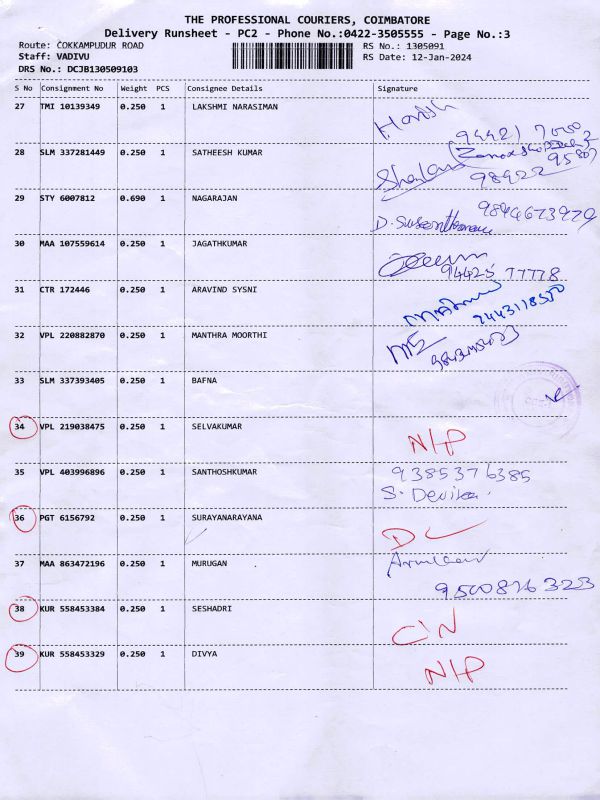 THE PROFESSIONAL COURIERS, COIMBATORE
Delivery Runsheet - PC2 - Phone No.:0422-3505555 - Page No.:3
Route: COKKAMPUDUR ROAD RS No.: 1305091
Staff: VADIVU RS Date: 12-Jan-2024
DRS No.: DCJB130509103
S No Consignment No Weight PCS Consignee Details Signature
27 TMI 10139349 0.250 1 LAKSHMI NARASIMAN Harish
94421 7000
28 SLM 337281449 0.250 1 SATHEESH KUMAR
98422 95807
29 STY 6007812 0.690 1 NAGARAJAN 9844673979
30 MAA 107559614 0.250 1 JAGATHKUMAR
94425 77778
31 CTR 172446 0.250 1 ARAVIND SYSNI
32 VPL 220882870 0.250 1 MANTHRA MOORTHI
33 SLM 337393405 0.250 1 BAFNA
34 VPL 219038475 1 0.250 SELVAKUMAR N/P
35 VPL 403996896 0.250 1 SANTHOSHKUMAR 9385376385
S. Devika.
36 PGT 6156792 0.250 1 SURAYANARAYANA DL
37 MAA 863472196 0.250 1 MURUGAN
9500876323
38 KUR 558453384 0.250 1 SESHADRI C/N
39 KUR 558453329 0.250 1 DIVYA N/P